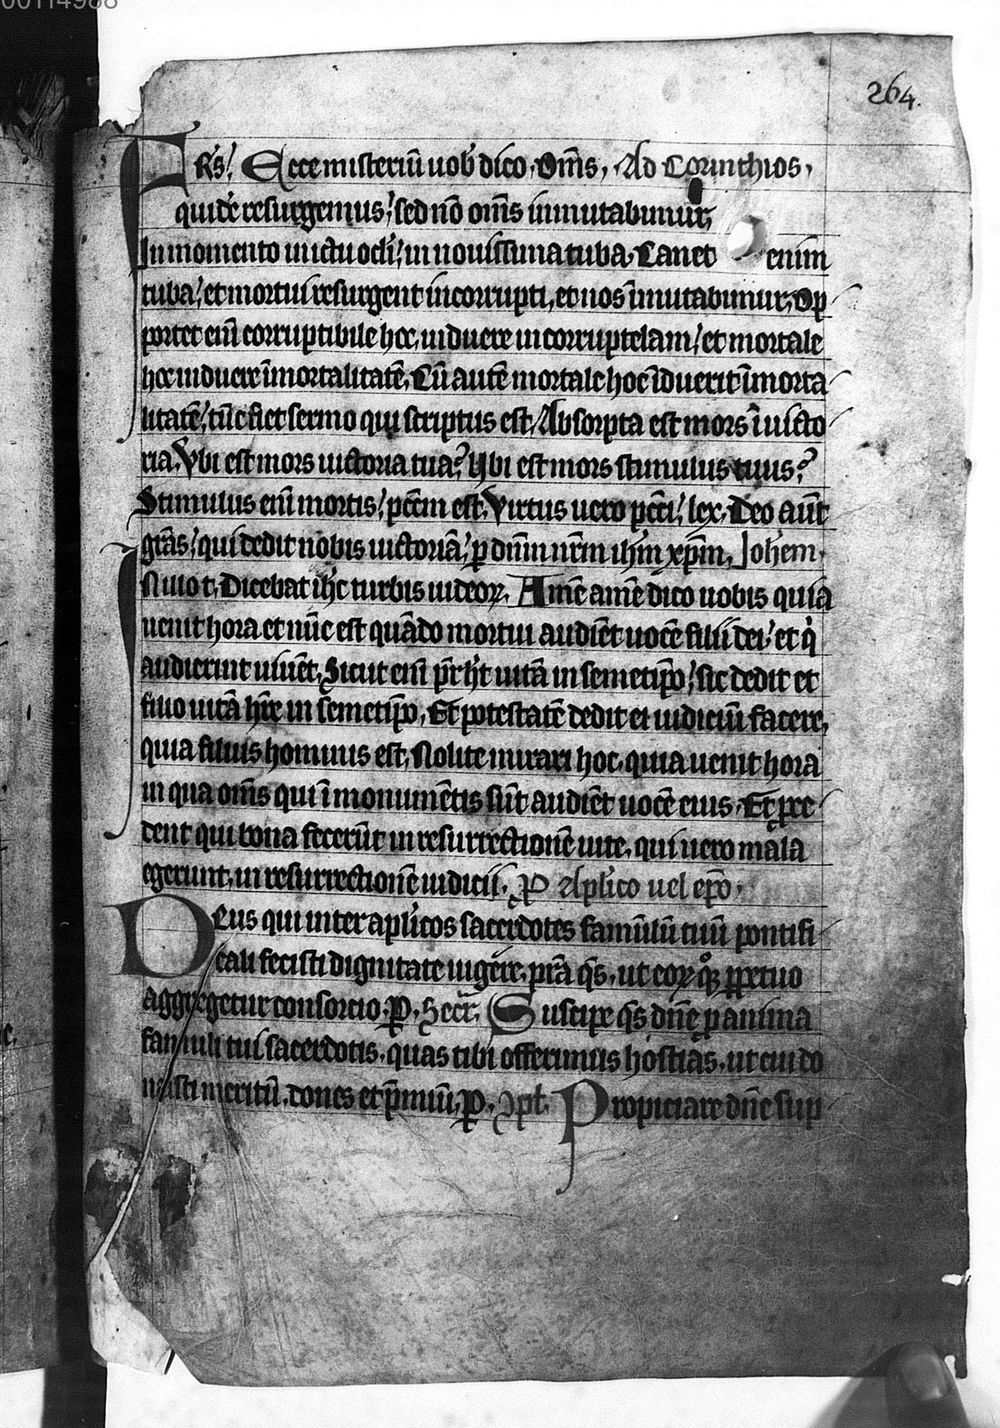 264.
FRs! Ecce misteriū uob dico. Om̄s, Ad Corinthios,
quidē resurgemus! sed nō om̄s inmutabimur,
In momento in ictu ocli! in nouissima tuba. Canet enim
tuba! et mortui resurgent incorrupti, et nos īmutabimur, Op
portet eni̅ corruptibile hoc, induere incorruptelam! et mortale
hoc induere īmortalitatē, Cū autē mortale hoc īduerit īmorta
litatē! tūc fiet sermo qui scriptus est, Absorpta est mors ī uicto
ria, Vbi est mors uictoria tua? Ubi est mors stimulus tuus?
Stimulus eni̅ mortis! pcc̄m est, Virtus uero pcc̄i! lex, Deo aūt
grās! qui dedit nobis uictoriā! p dn̄m nr̄m ih̄m xp̄m, Johem.
N illo t. Dicebat ih̄c turbis iudeoꝝ, Amē amē dico uobis quia
uenit hora et nūc est quādo mortui audiēt uocē filii dei! et q̇
audierint uiuēt, Sicut eni̅ pr̄ h̄t uitā in semetip̄o! sic dedit et
filio uitā hr̄e in semetip̄o, Et potestatē dedit ei iudiciū facere,
quia filius hominis est, Nolite mirari hoc, quia uenit hora
in qua om̄s qui ī monumētis sūt audiēt uocē eius, Et pce
dent qui bona fecerūt in resurrectionē uite, qui uero mala
egerunt, in resurrectionē iudicii, P Aplico uel ep̄o.
Deus qui inter aplicos sacerdotes famulū tuū pontifi
cali fecisti dignitate uigere, pr̄a q̄s, ut eoꝝ quoqꝫ ppetuo
aggregetur consorcio, P. Secr̄. Suscipe q̄s dn̄e p anima
famuli tui sacerdotis, quas tibi offerimus hostias, ut cui do
nasti meritū, dones et p̄miū, P. Cpl. Propiciare dn̄e sup